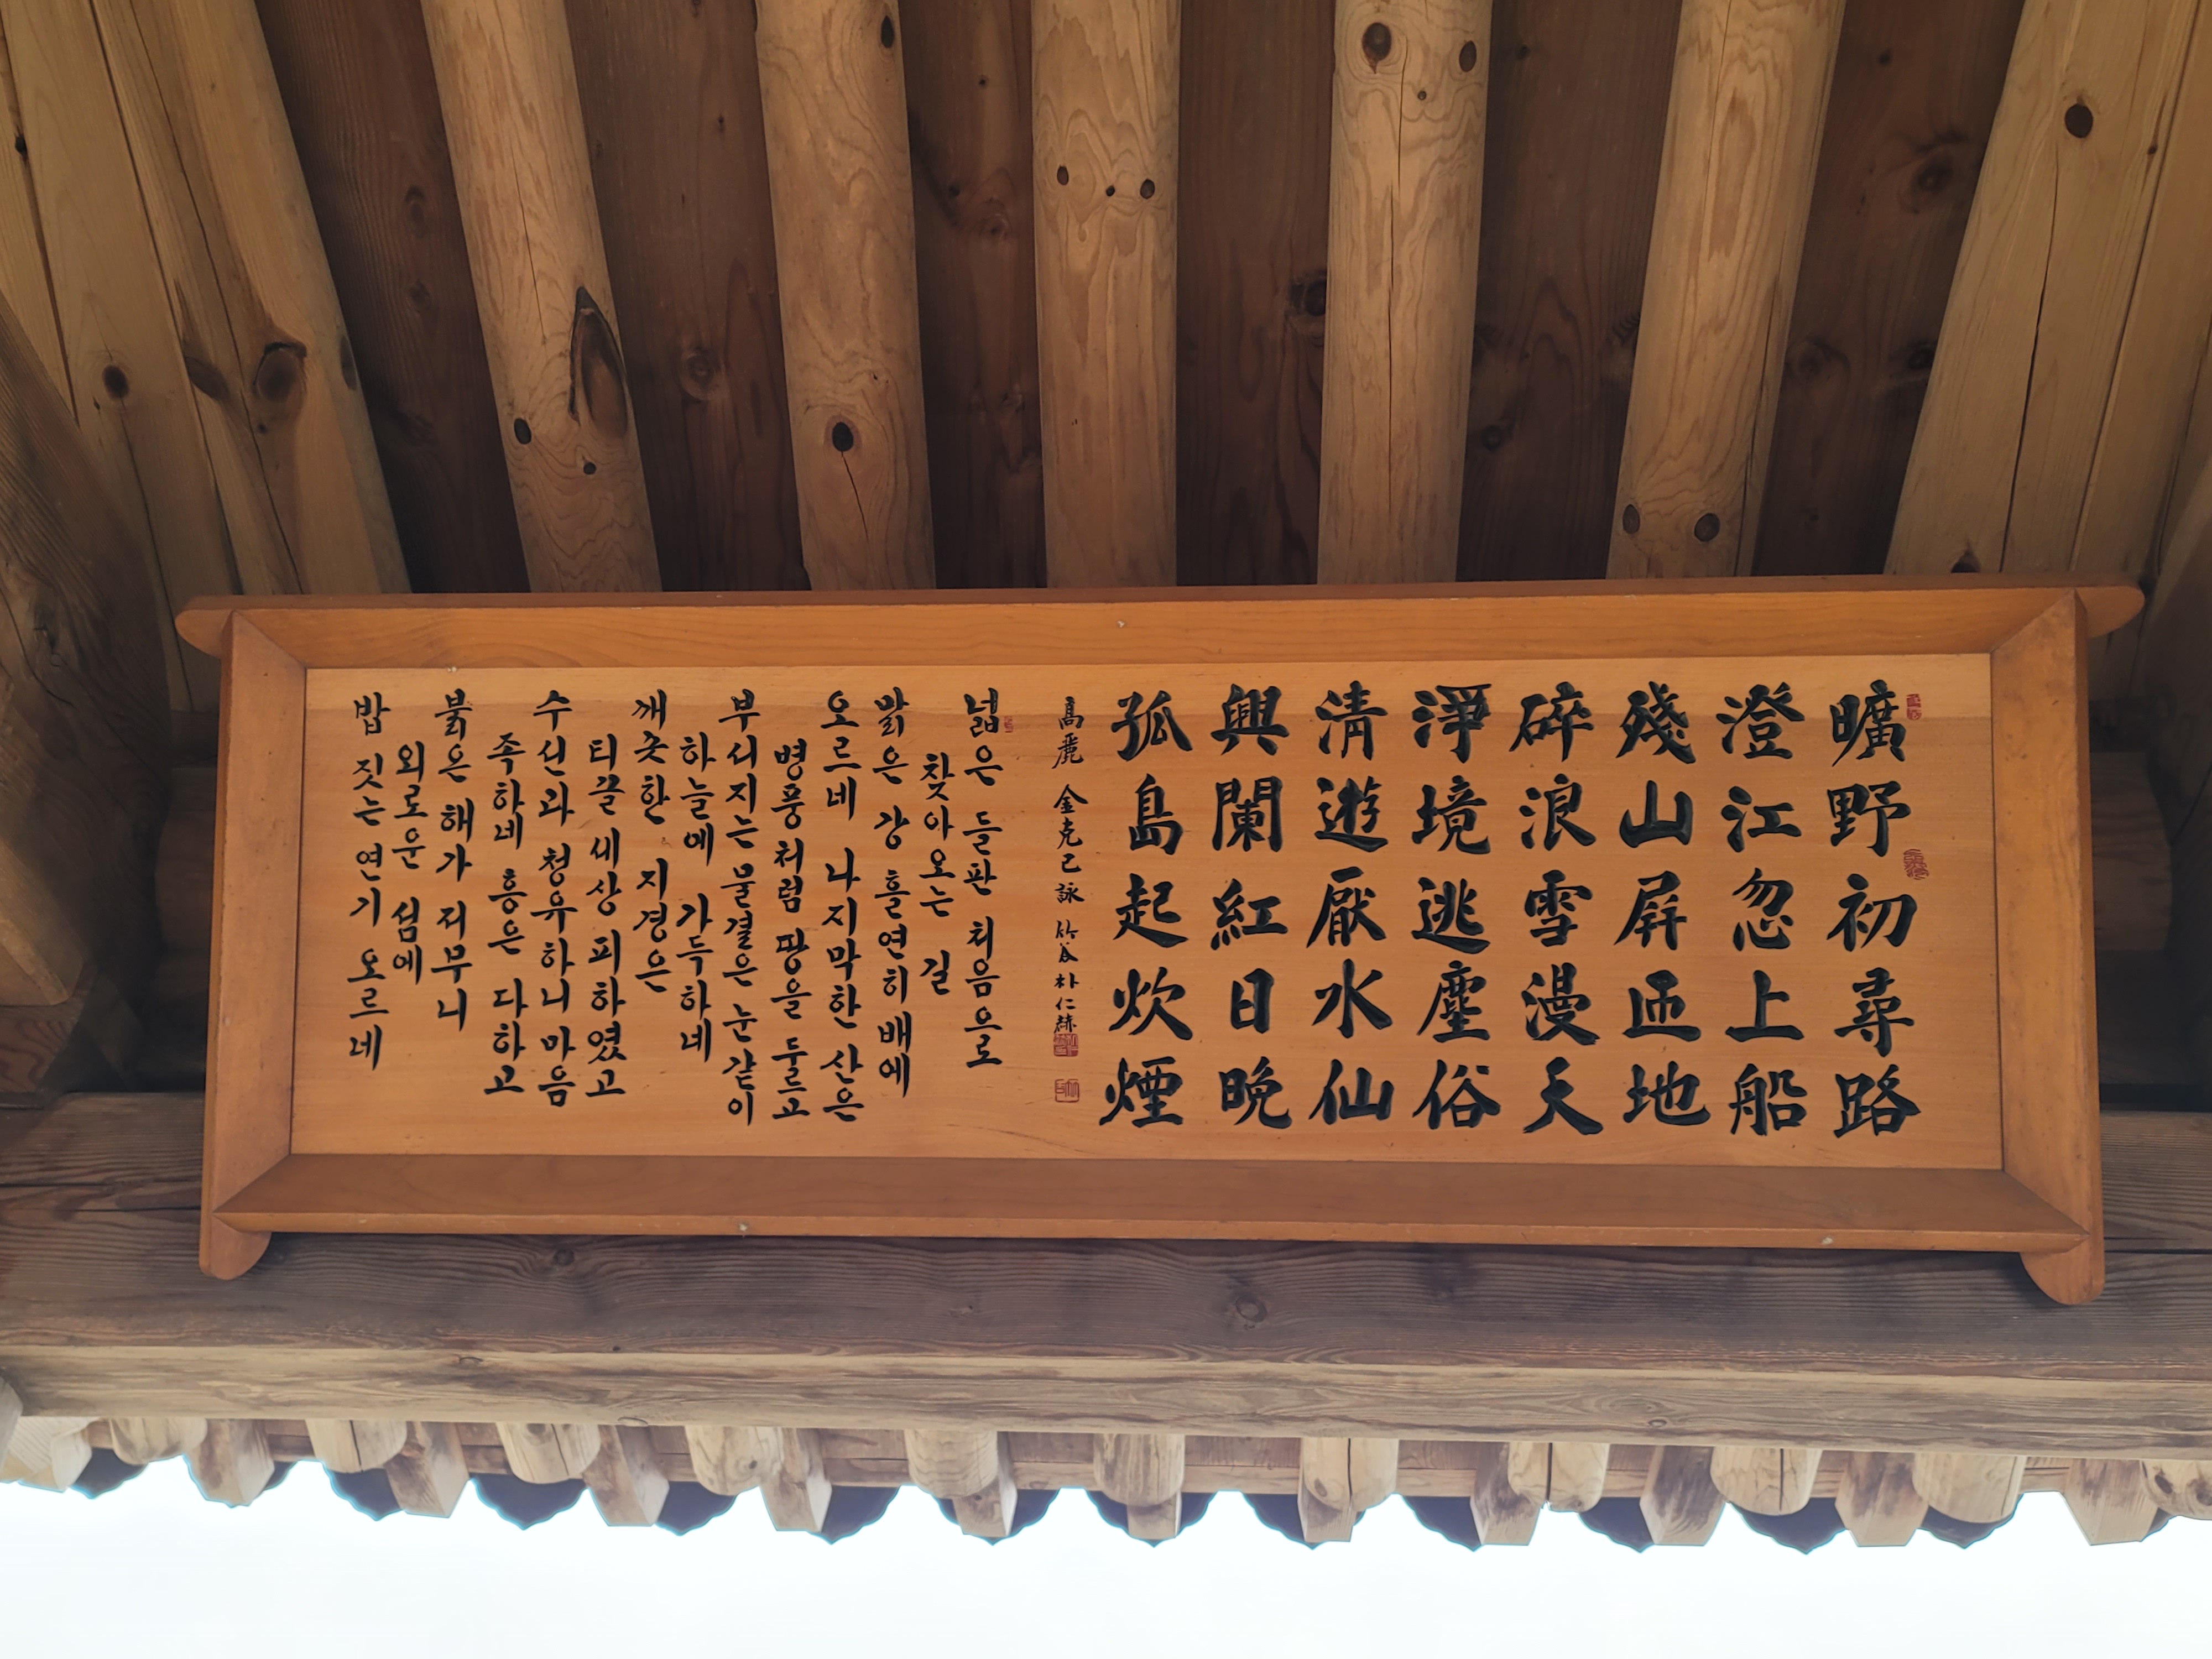 曠野初尋路
澄江忽上船
殘山屛迊地
碎浪雪漫天
淨境逃塵俗
淸遊厭水仙
興闌紅日晩
孤島起炊煙
高麗 金克己 詠 竹谷 朴仁赫
넓은 들판 처음으로
찾아오는 길
맑은 강 홀연히 배에
오르네 나지막한 산은
병풍처럼 땅을 둘르고
부서지는 물결은 눈같이
하늘에 가득하네
깨끗한 지경은
티끌 세상 피하였고
수선과 청유하니 마음
족하네 흥은 다하고
붉은 해가 저무니
외로운 섬에
밥 짓는 연기 오르네